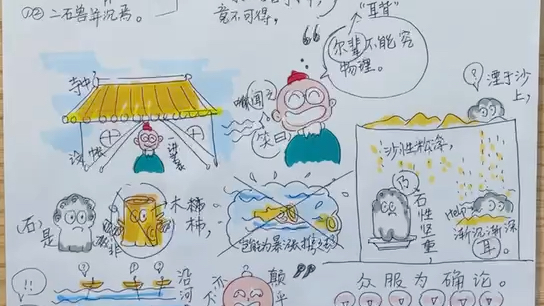 二石兽并沉焉。
竟不可得,
"耳背"
尔辈不能究
物理。
寺中
讲帐
一讲学家
闻之
笑曰:
?湮于沙
上,
沙性松浮,
石
是
非
木杮
岂能为暴涨携之去?
乃
石性坚重,
Help
渐沉渐深
耳。
!!
沿河
颠
众服为确论。